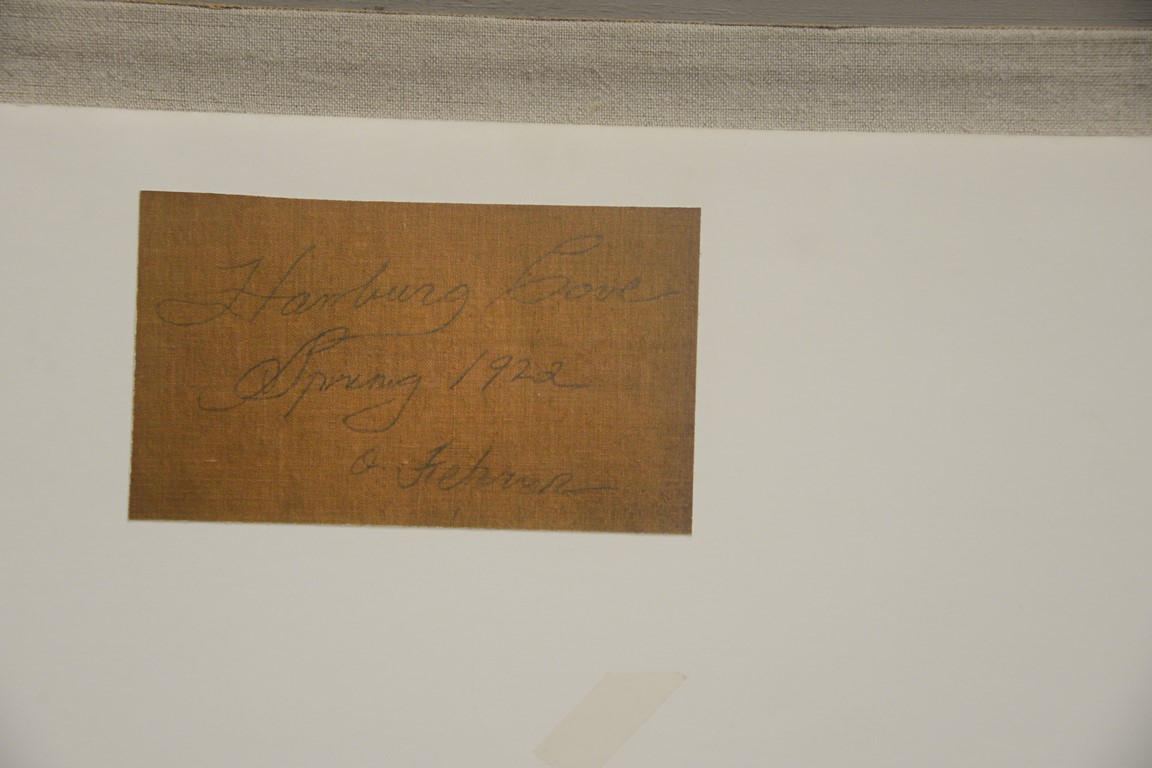 Hamburg Cove
Spring 1922
O Fehrer